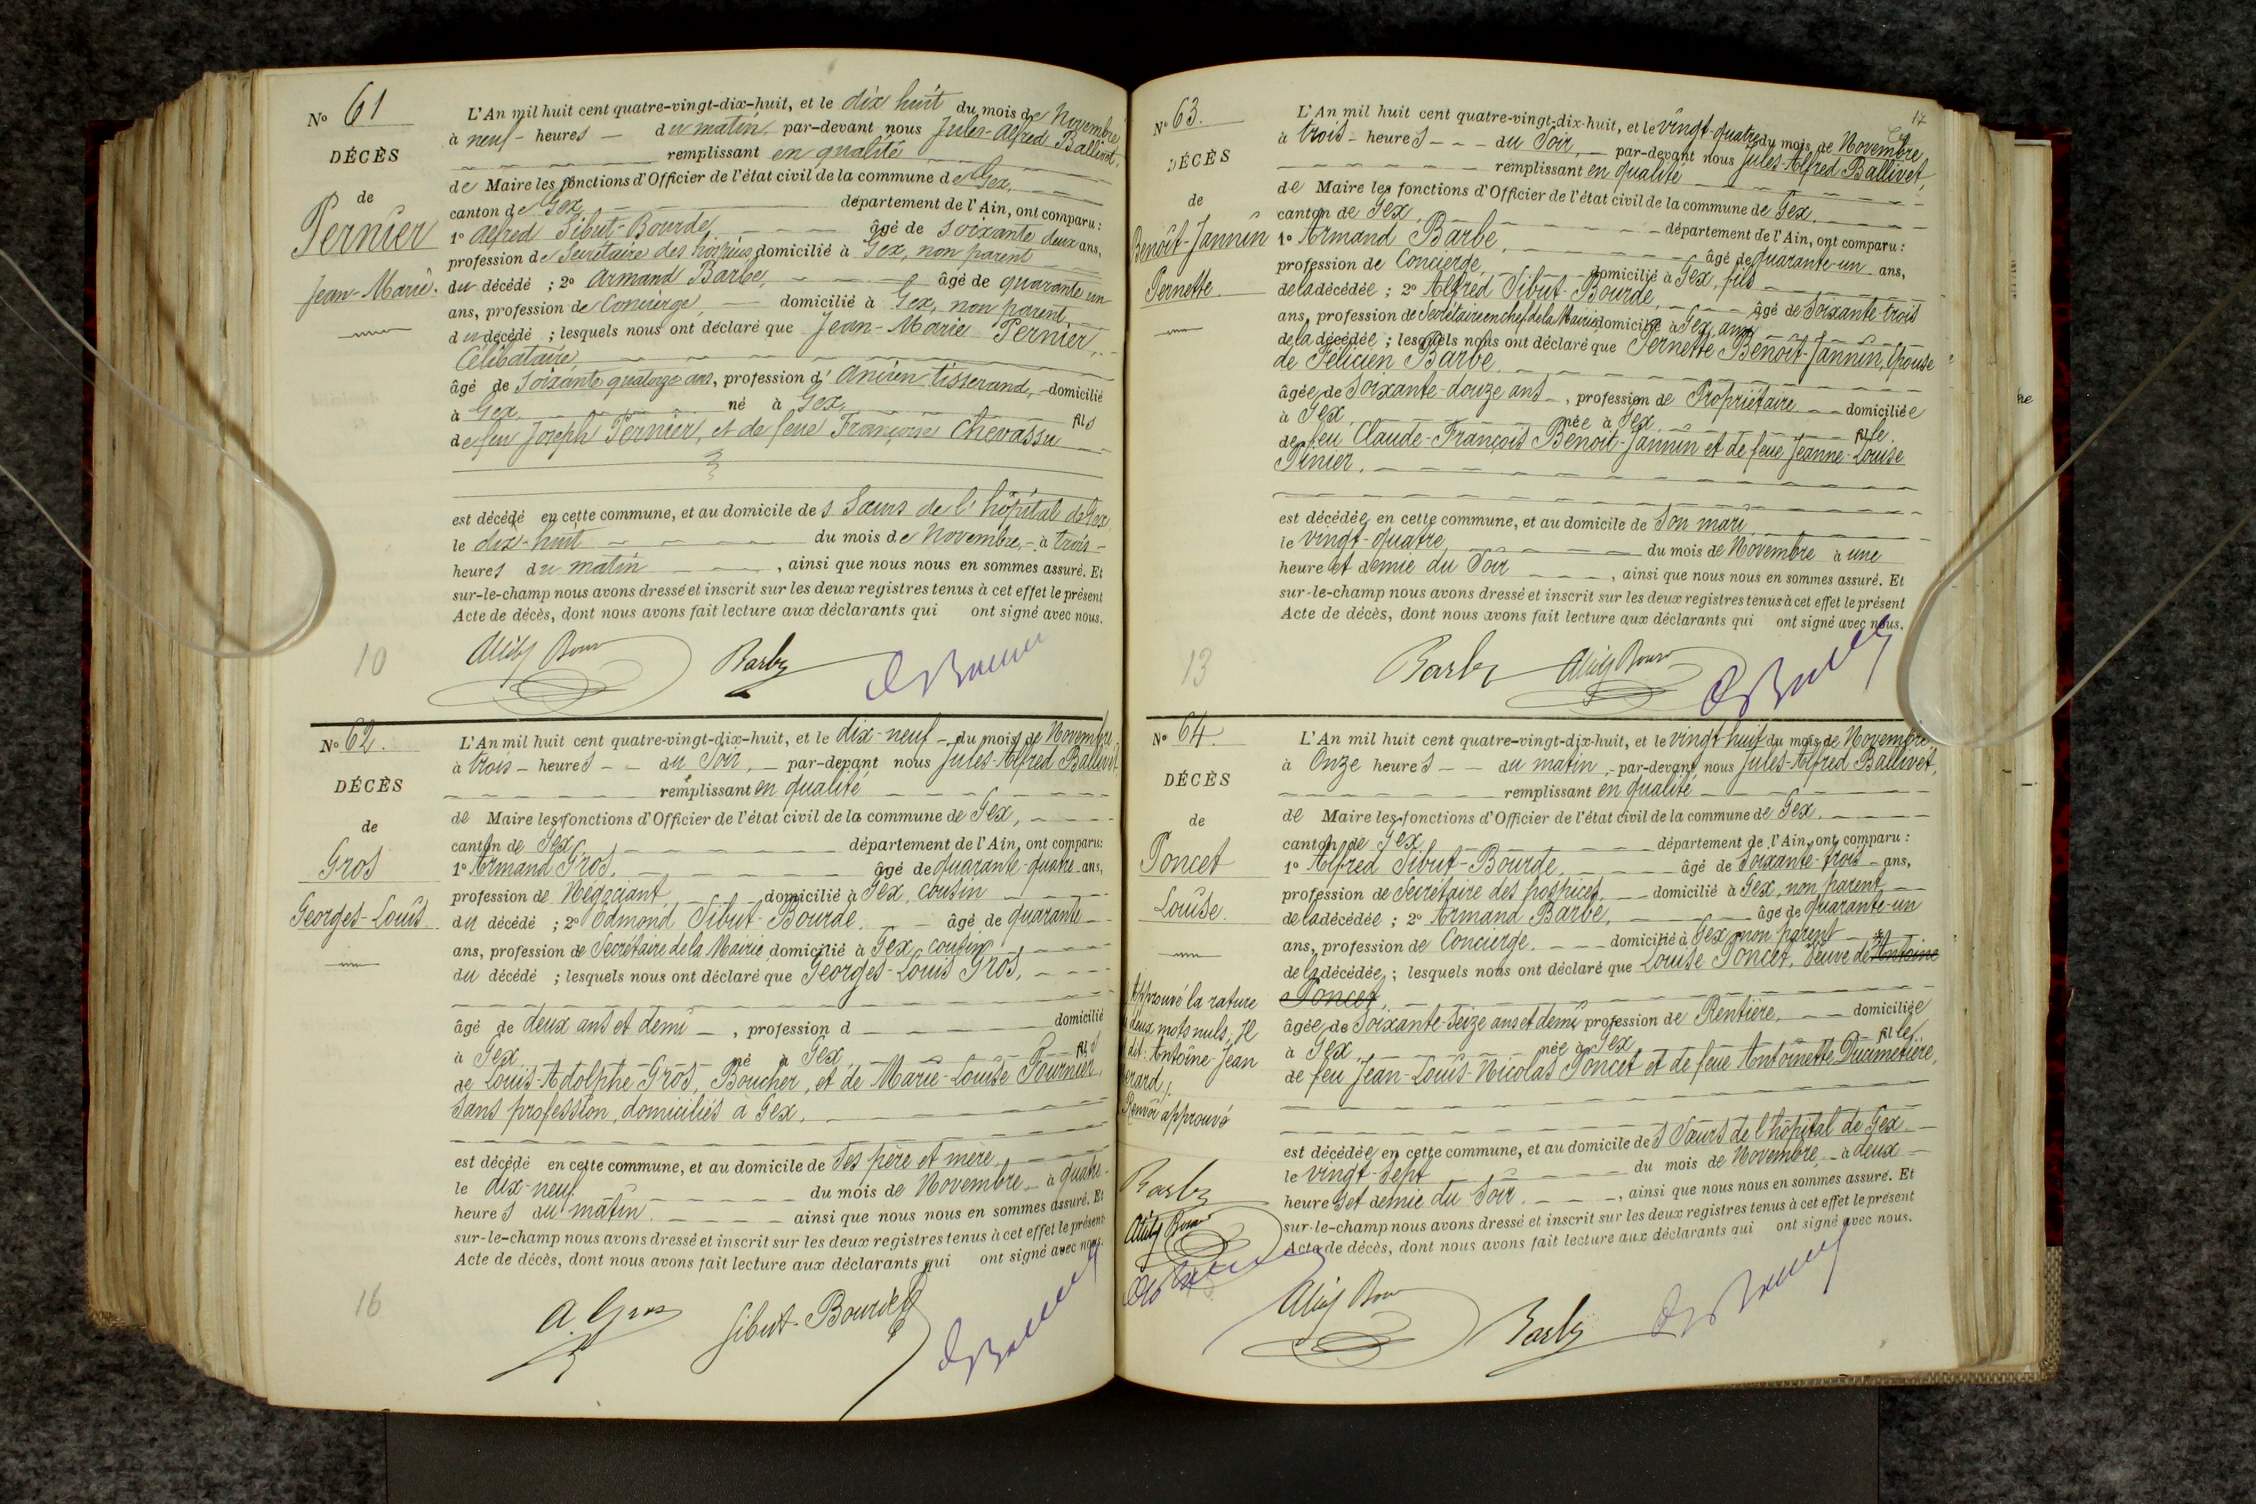 No 61
DÉCÈS
de
Pernier
Jean-Marie.
L'An mil huit cent quatre-vingt-dix-huit, et le dix huit du mois de Novembre
à neuf - heures - du matin, par-devant nous Jules-Alfred Ballivet,
remplissant en qualité
de Maire les fonctions d'Officier de l'état civil de la commune de Gex,
canton de Gex département de l'Ain, ont comparu :
1o Alfred Sibut-Bourde, âgé de soixante deux ans,
profession de Secrétaire des hospices domicilié à Gex, non parent
du décédé ; 2o Armand Barbe, âgé de quarante un
ans, profession de Concierge, domicilié à Gex, non parent
du décédé ; lesquels nous ont déclaré que Jean-Marie Pernier,
Célibataire,
âgé de Soixante quatorze ans, profession d'ancien tisserand, domicilié
à Gex, né à Gex, fils
de feu Joseph Pernier, et de feue Françoise Chevassu
est décédé en cette commune, et au domicile des Sœurs de l'hôpital de Gex
le dix-huit du mois de Novembre, - à trois -
heures du matin , ainsi que nous nous en sommes assuré. Et
sur-le-champ nous avons dressé et inscrit sur les deux registres tenus à cet effet le présent
Acte de décès, dont nous avons fait lecture aux déclarants qui ont signé avec nous.
10
Barbe
No 62.
DÉCÈS
de
Gros
Georges-Louis
L'An mil huit cent quatre-vingt-dix-huit, et le dix-neuf - du mois de Novembre
à trois - heures - - du soir, - par-devant nous Jules-Alfred Ballivet
remplissant en qualité
de Maire les fonctions d'Officier de l'état civil de la commune de Gex,
canton de Gex, département de l'Ain, ont comparu:
1o Armand Gros, âgé de quarante-quatre ans,
profession de Négociant, domicilié à Gex, cousin
du décédé ; 2o Edmond Sibut-Bourde, âgé de quarante
ans, profession de Secrétaire de la Mairie domicilié à Gex, cousin
du décédé ; lesquels nous ont déclaré que Georges-Louis Gros,
âgé de deux ans et demi - , profession d domicilié
à Gex, né à Gex, fils
de Louis-Adolphe Gros, Boucher, et de Marie-Louise Fournier,
sans profession, domiciliés à Gex,
est décédé en cette commune, et au domicile de ses père et mère
le dix-neuf du mois de Novembre - à quatre -
heures du matin ainsi que nous nous en sommes assuré. Et
sur-le-champ nous avons dressé et inscrit sur les deux registres tenus à cet effet le présent
Acte de décès, dont nous avons fait lecture aux déclarants qui ont signé avec nous.
16
A. Gros
Sibut-Bourde
17
No 63.
DÉCÈS
de
Benoît-Jannin
Pernette
L'An mil huit cent quatre-vingt-dix-huit, et le vingt-quatre du mois de Novembre
à trois - heures - - - du soir, - par-devant nous Jules-Alfred Ballivet,
remplissant en qualité
de Maire les fonctions d'Officier de l'état civil de la commune de Gex,
canton de Gex, département de l'Ain, ont comparu :
1o Armand Barbe, âgé de quarante-un ans,
profession de Concierge, domicilié à Gex, fils
de la décédée ; 2o Alfred Sibut-Bourde, âgé de soixante-trois
ans, profession de Secrétaire en chef de la Mairie domicilié à Gex, ami
de la décédée ; lesquels nous ont déclaré que Pernette Benoît-Jannin, Epouse
de Félicien Barbe,
âgée de soixante-douze ans - , profession de Propriétaire - - domiciliée
à Gex, née à Gex, fille
de feu Claude-François Benoît-Jannin et de feue Jeanne-Louise
Pinier.
est décédée en cette commune, et au domicile de son mari
le vingt-quatre du mois de Novembre à une
heure et demie du soir - - - , ainsi que nous nous en sommes assuré. Et
sur-le-champ nous avons dressé et inscrit sur les deux registres tenus à cet effet le présent
Acte de décès, dont nous avons fait lecture aux déclarants qui ont signé avec nous.
13
Barbe
No 64.
DÉCÈS
de
Poncet
Louise.
Approuvé la rature
deux mots nuls, Je
dit: Antoine-Jean
Renvoi approuvé
Barbe
L'An mil huit cent quatre-vingt-dix-huit, et le vingt-huit du mois de Novembre
à Onze heures - - du matin, - par-devant nous Jules-Alfred Ballivet,
remplissant en qualité
de Maire les fonctions d'Officier de l'état civil de la commune de Gex,
canton de Gex département de l'Ain, ont comparu :
1o Alfred Sibut-Bourde, âgé de soixante-trois - ans,
profession de Secrétaire des hospices, domicilié à Gex, non parent
de la décédée ; 2o Armand Barbe, âgé de quarante-un
ans, profession de Concierge, - - - domicilié à Gex, non parent
de la décédée ; lesquels nous ont déclaré que Louise Poncet, Veuve de * Antoine
Poncet,
âgée de soixante-seize ans et demi profession de Rentière, - - domiciliée
à Gex, née à Gex, fille
de feu Jean-Louis-Nicolas Poncet et de feue Antoinette Ducimetière,
est décédée en cette commune, et au domicile des Sœurs de l'hôpital de Gex
le vingt-sept du mois de Novembre - à deux -
heures et demie du soir - - - - , ainsi que nous nous en sommes assuré. Et
sur-le-champ nous avons dressé et inscrit sur les deux registres tenus à cet effet le présent
Acte de décès, dont nous avons fait lecture aux déclarants qui ont signé avec nous.
Barbe